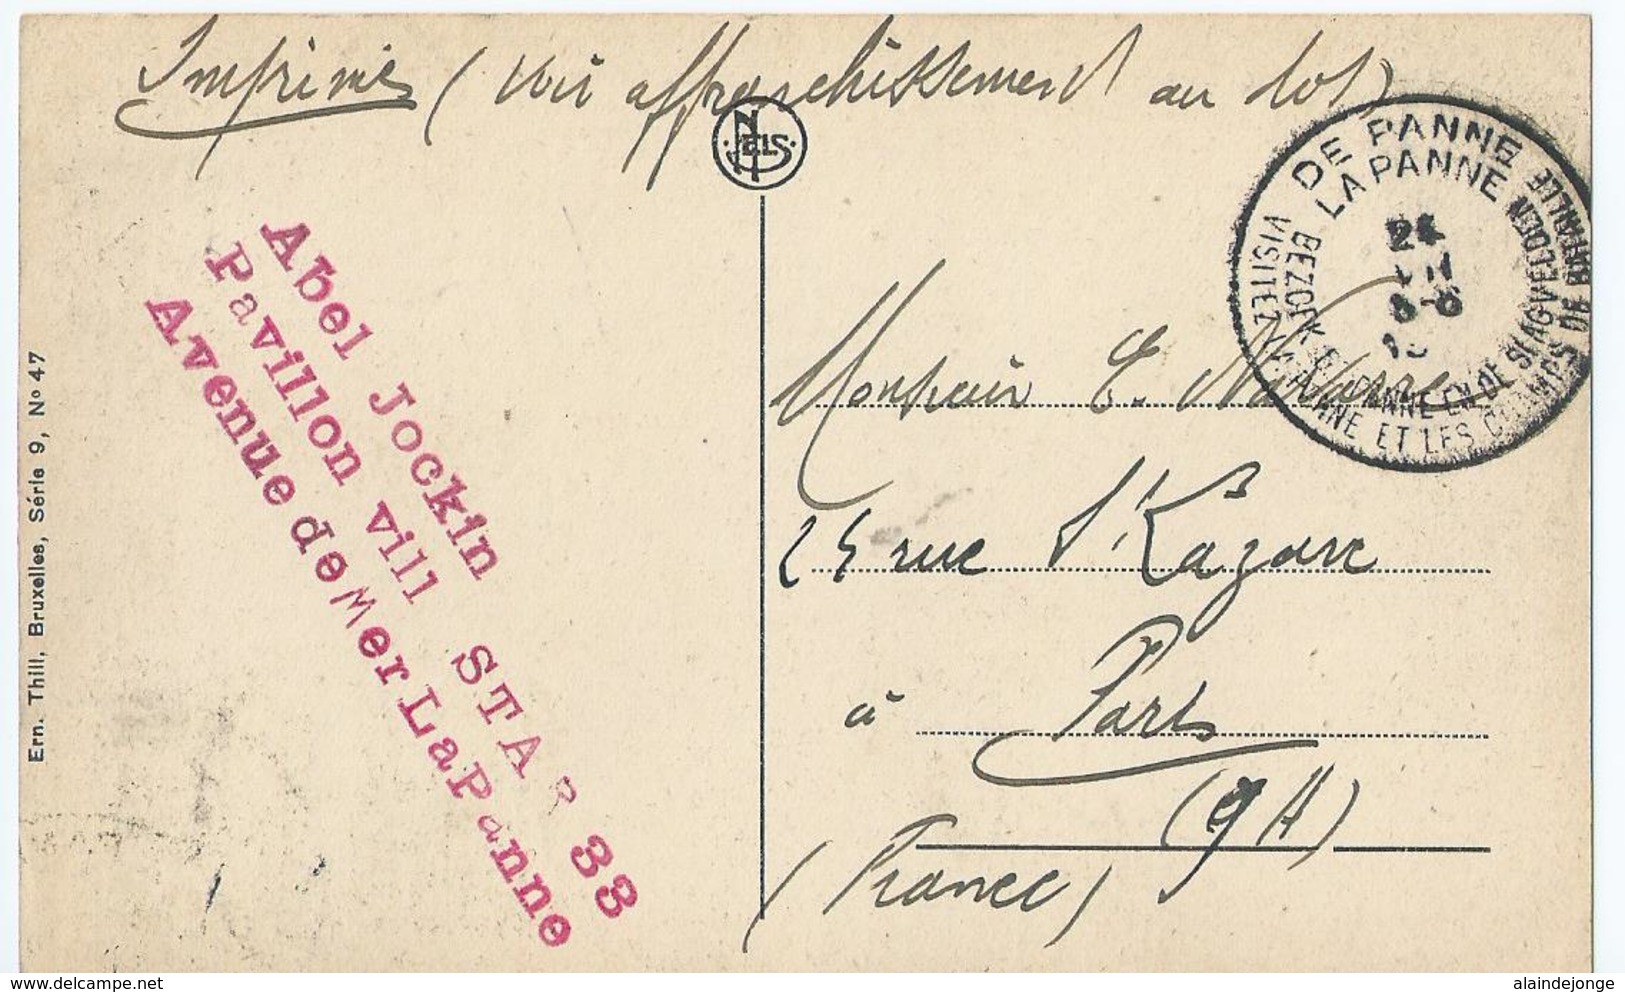 Imprimé (voir affranchissement au dos)
NELS
DE PANNE
LA PANNE
BEZOEK DE PANNE EN DE SLAGVELDEN
VISITEZ LA PANNE ET LES CHAMPS DE BATAILLE
24
Abel Jockin
Pavillon vill STAR 33
Avenue de Mer LaPanne
Monsieur E.
25 rue St Lazare
à Paris
(9A)
(France)
Ern. Thill, Bruxelles, Série 9, No 47
alaindejonge